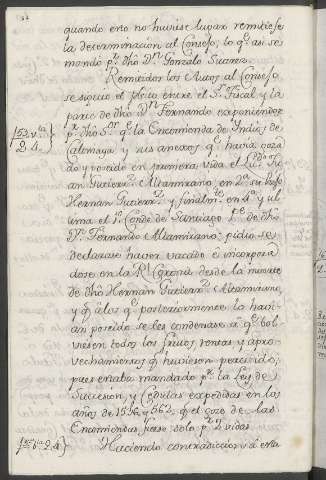 quando esto no huviese lugar remitiese
la determinacion al Consejo; lo qe. asi se
mandó pr. dho Dn. Gonzalo Suarez.
Remitidos los Autos al Consejo
se siguio el pleito entre el Sr. Fiscal y la
parte de dho Dn. Fernando exponiendose
pr. dho Sr. qe. la Encomienda de Indios de
Calimaya y sus anexos qe. havia goza
do y poseido en primera vida el Ldo. Ju
an Gutierrez Altamirano, en 2a. su hijo
Hernan Gutierrez y finalmte. en 3a. y ul
tima el 1o. Conde de Santiago pe. de dho
Dn. Fernando Altamirano: pidio se
declarase haver vacado é incorpora
dose en la Rl. Corona desde la muerte
de dho Hernan Gutierrez Altamirano,
y qe. á los qe. posteriormente la havi
an poseido se les condenase á qe. bol
viesen todos los frutos rentas y apro
vechamientos qe. huviesen percivido;
pues estaba mandado pr. la Ley de
Sucesion, y Cedulas expedidas en los
años de 1526 y 562, qe. el goze de las
Encomiendas fuese solo pr. 2 vidas.
Haciendo contradiccion á esta